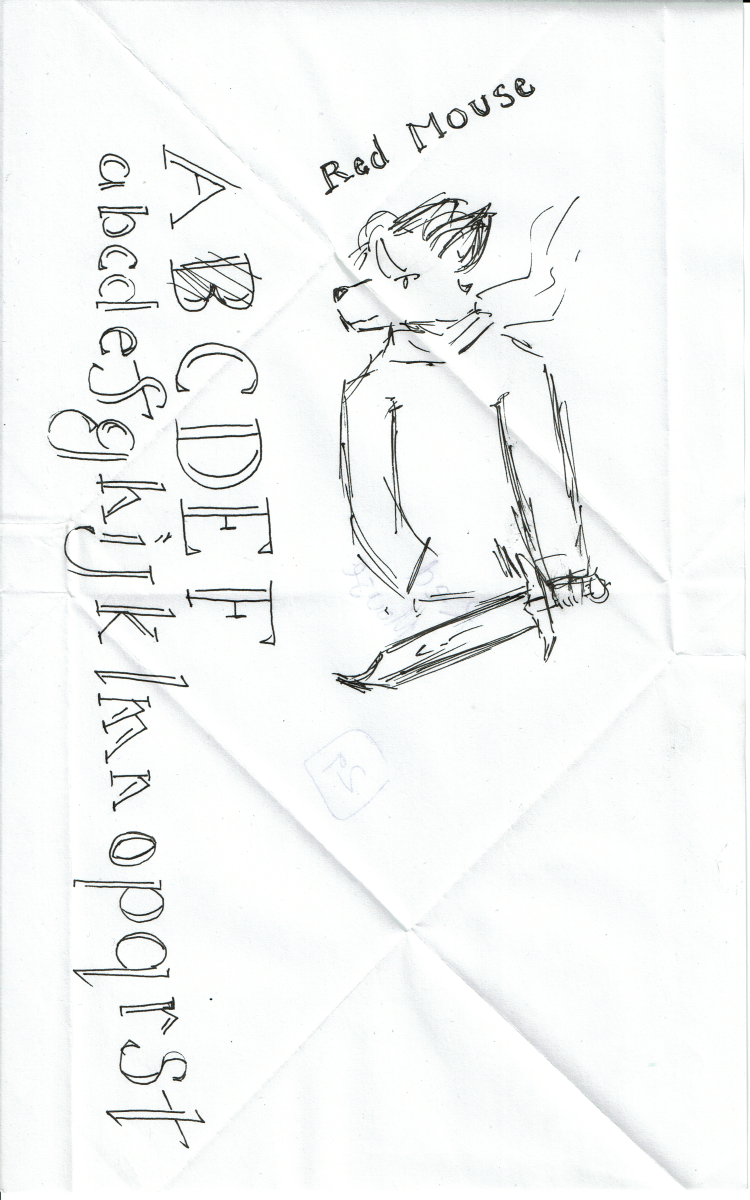 Red Mouse
A B C D E F
a b c d e f g h i j k l m n o p q r s t